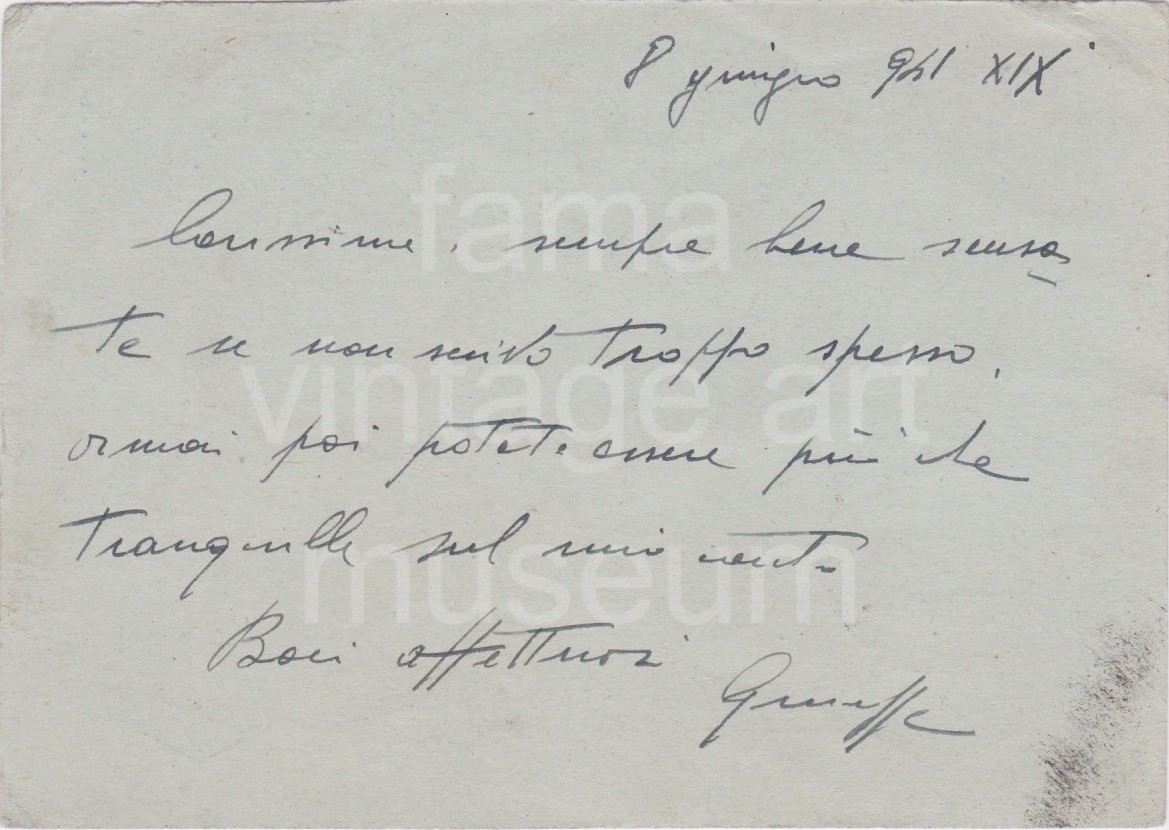 8 giugno 941 XIX
Carissime, sempre bene scusa
te se non scrivo troppo spesso,
ormai poi potete essere più che
tranquille sul mio conto
Baci affettuosi
Giuseppe
fama
vintage art
museum